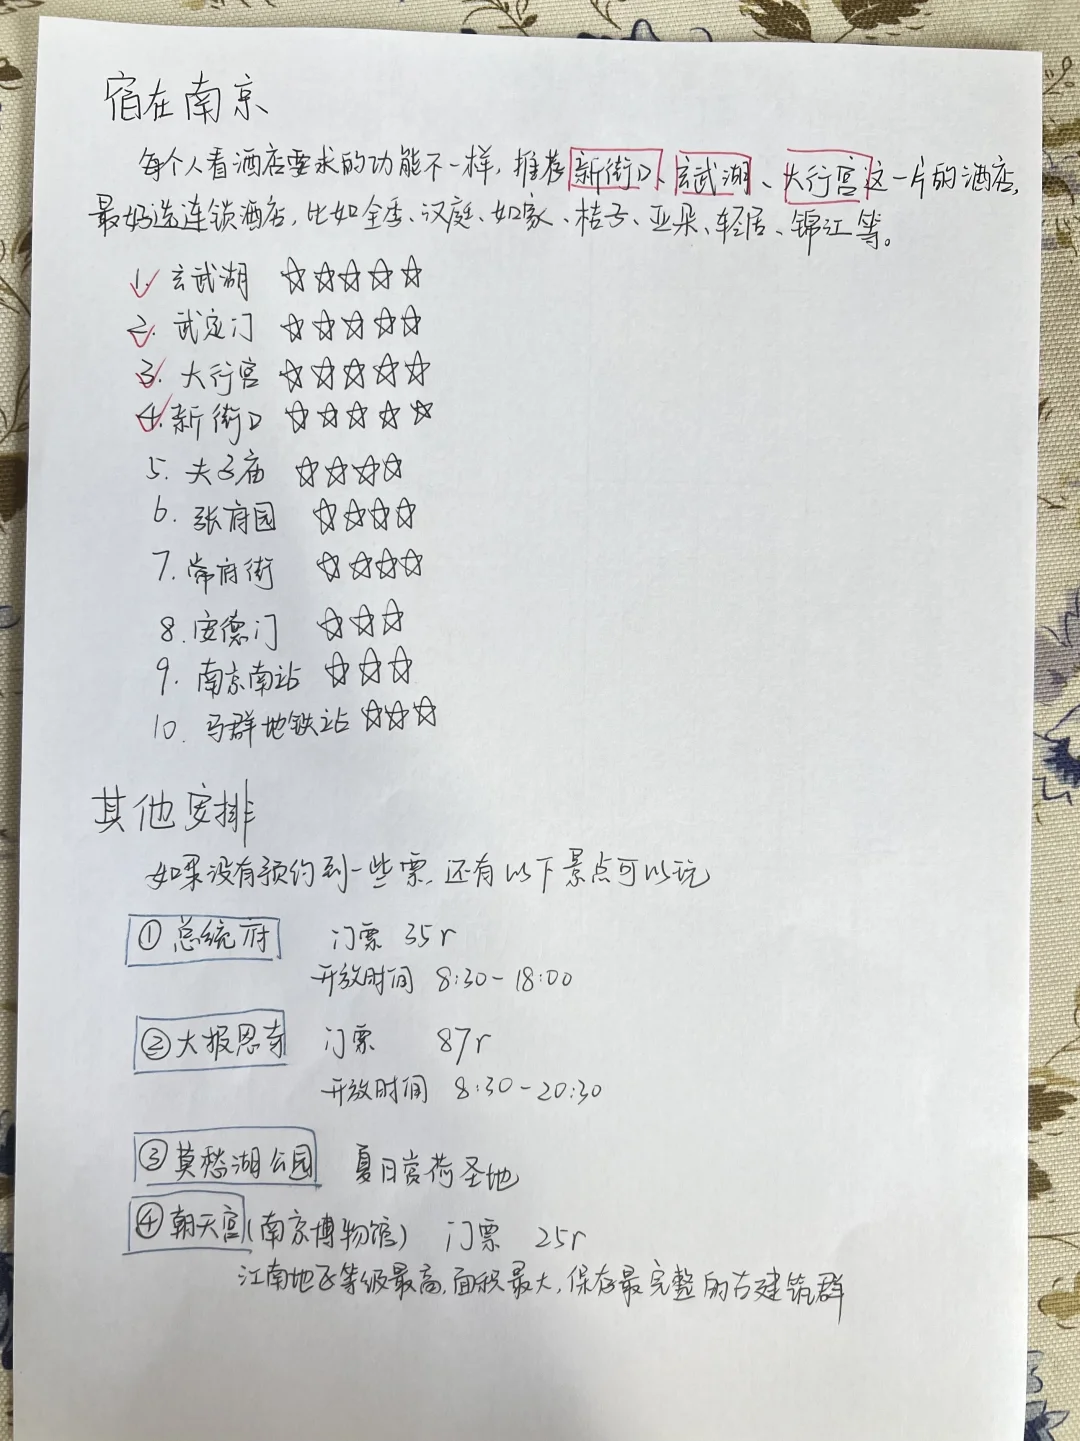 宿在南京
每个人看酒店要求的功能不一样，推荐新街口、玄武湖、大行宫这一片的酒店，
最好选连锁酒店，比如全季、汉庭、如家、桔子、亚朵、轻居、锦江等。
1. 玄武湖 ☆☆☆☆☆
2. 武定门 ☆☆☆☆☆
3. 大行宫 ☆☆☆☆☆
4. 新街口 ☆☆☆☆☆
5. 夫子庙 ☆☆☆☆
6. 张府园 ☆☆☆☆
7. 常府街 ☆☆☆☆
8. 安德门 ☆☆☆
9. 南京南站 ☆☆☆
10. 马群地铁站 ☆☆☆
其他安排
如果没有预约到一些票，还有以下景点可以玩
① 总统府 门票 35r
开放时间 8:30-18:00
② 大报恩寺 门票 87r
开放时间 8:30-20:30
③ 莫愁湖公园 夏日赏荷圣地
④ 朝天宫(南京博物馆) 门票 25r
江南地区等级最高，面积最大，保存最完整的古建筑群